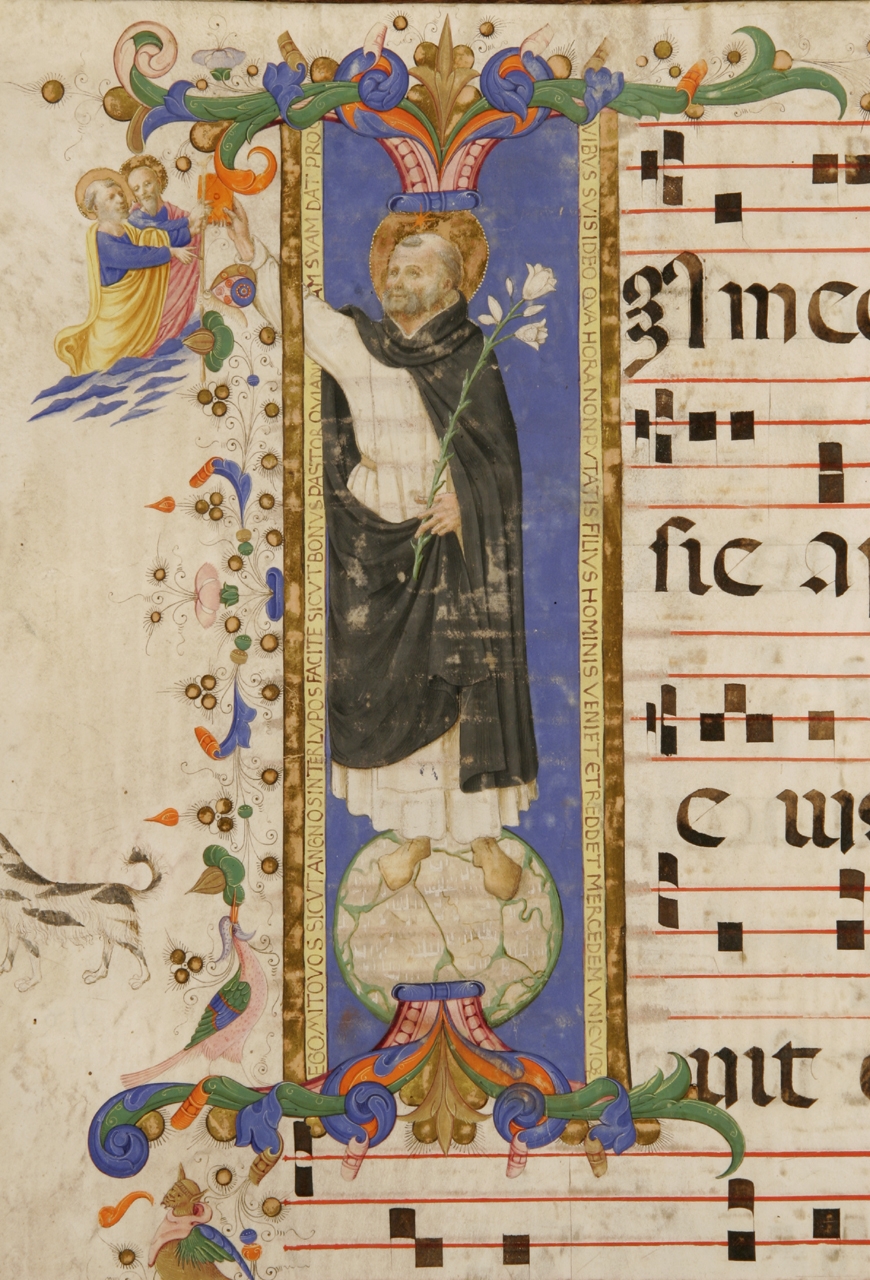 EGO MITO VOS SICVT ANGNOS INTER LVPOS FACITE SICVT BONVS PASTOR QVI ANIMAM SVAM DAT PRO
VIBVS SVIS IDEO QVA HORA NON PVTATIS FILIVS HOMINIS VENIET ET REDDET MERCEDEM VNICVIQ
In med
sic ap
e uis
uit